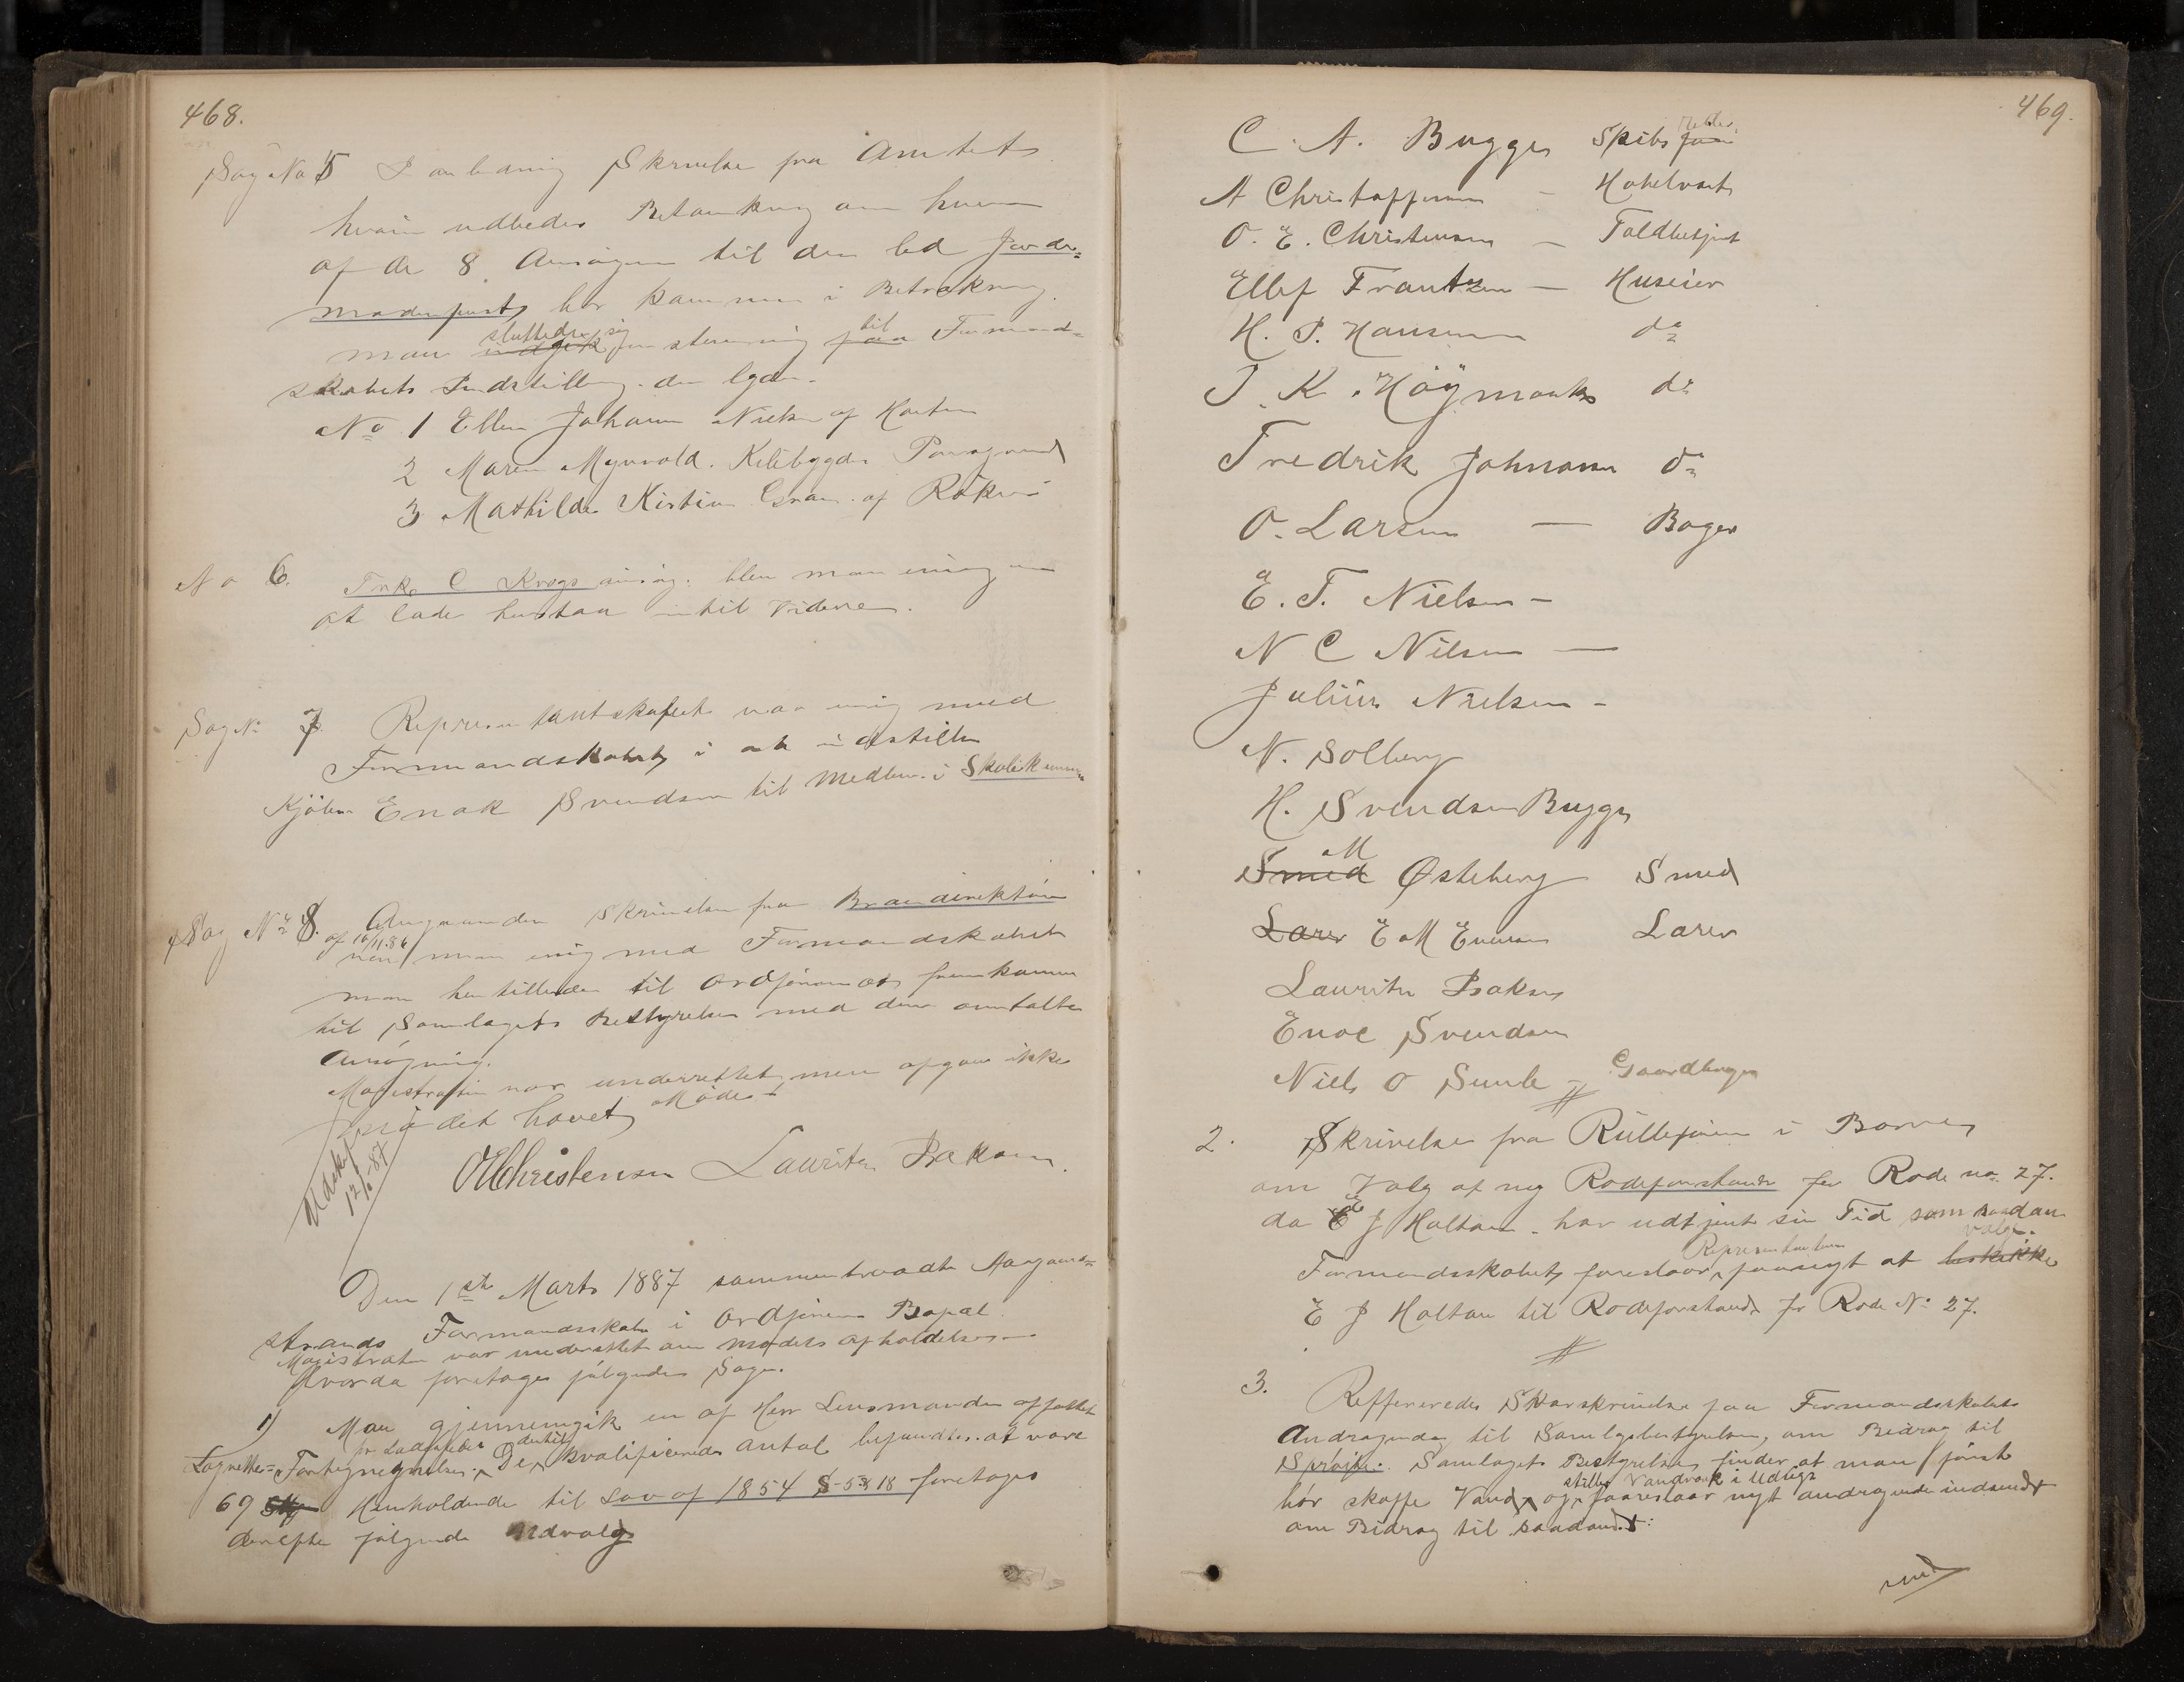 468.
Sag No 5 I anledning Skrivelse fra Amtet
hvori udbedes Betænkning om hvem
af de 8 Ansøgere til den led Jorde=
moderpost bør komme i Betrækning
man sluttede sig indgik enstemmig til paa Formand=
skabets Indstilling. den lyder.
No 1 Ellen Johanne Nielsen af Horten
2 Maren Myrvold. Kilebygden Porsgrund
3 Mathilde Kistine Gran. af Røken
No 6. C Krogs ansøg. blev man enig om
at lade henstaa indtil Videre.
Sag No 7 Representantskabet var enig med
Formandskabet i at indstille
Enok Svendsen til Medlem i
Sag No 8. Angaaende Skrivelse fra Brandirektøren
af 16/11.86 var man enig med Formandskabet
man henstillede til Ordføreren at fremkomme
til Samlagets Bestyrelse med den omtalte
Ansøgning.
Magistraten var underrettet men afgav ikke
Møde
det hovet
Udskr 12/1-87
OEChristensen Lauritz Isaksen.
Den 1ste Marts 1887 sammentraadte Aasgaard=
strands Formandsskab i Ordførerens Bopæl
Magistraten var underrettet om mødets afholdelse
Hvorda foretoges følgende Sager.
1) Man gjennemgik en af Herr Lensmanden affattet
Lagrettes= Fortegnegnelse. De dertil kvalificerede Antal befandtes at være
69 Henholdende til Lov af 1854 § 18 foretoges
derefter følgende Udvalg
469.
C. A. Bugge Skibs reder
A Christoffersen — Hotelvært
O. E. Christensen — Toldbetjent
Ellef Frantzen — Huseier
H. P. Hansen do
J. K. Höymark do
Fredrik Johnasen do
O. Larsen — Bager
E. T. Nielsen —
N C Nilsen —
Julius Nielsen -
N. Solberg
H. Svendsen Bugge
Smed M Østeberg Smed
Lærer E M Evensen Lærer
Lauritz Isaksen
Enoc Svendsen
Niels O Sunle — Gaardbruger
2. Skrivelse fra Rulleføreren i Borre
om Valg af ny Rodeforstander for Rode no 27.
da E J Holtan har udtjent sin Tid som saadan
Formandsskabet foreslaar Representanterne paanyt at vælge beskikke
E J Holtan til Rodeforstander for Rode No 27.
3. Reffereredes Svarskrivelse paa Formandsskabets
Andragende til Samlagsbestyrelsen, om Bidrag til
Sprøite. Samlagets Bestyrelse finder at man først
bør skaffe Vand, og stiller Vandværk i Udsigt foareslaar nyt andragende indsendt
om Bidrag til saadant: